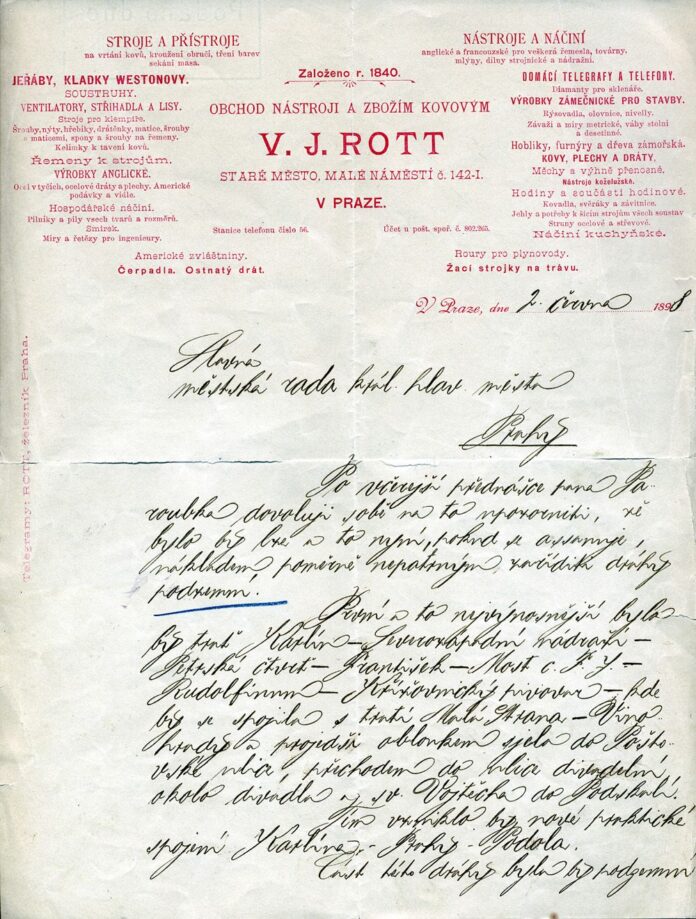 STROJE A PŘÍSTROJE
na vrtání kovů, kroužení obručí, tření barev
sekání masa.
JEŘÁBY, KLADKY WESTONOVY.
SOUSTRUHY.
VENTILATORY, STŘIHADLA A LISY.
Stroje pro klempíře.
Šrouby, nýty, hřebíky, drátěnky, matice, šrouby
s maticemi, spony a šrouby na řemeny.
Kelímky k tavení kovů.
Řemeny k strojům.
VÝROBKY ANGLICKÉ.
Ocel v tyčích, ocelové dráty a plechy, Americké
podávky a vidle.
Hospodářské náčiní.
Pilníky a pily všech tvarů a rozměrů.
Smirek.
Míry a řetězy pro ingenieury.
Americké zvláštniny.
Čerpadla. Ostnatý drát.
Založeno r. 1840.
OBCHOD NÁSTROJI A ZBOŽÍM KOVOVÝM
V. J. ROTT
STARÉ MĚSTO, MALÉ NÁMĚSTÍ č. 142-I.
V PRAZE.
Stanice telefonu číslo 56.
Účet u pošt. spoř. č. 802.265.
NÁSTROJE A NÁČINÍ
anglické a francouzské pro veškerá řemesla, továrny,
mlýny, dílny strojnické a nádražní.
DOMÁCÍ TELEGRAFY A TELEFONY.
Diamanty pro sklenáře.
VÝROBKY ZÁMEČNICKÉ PRO STAVBY.
Rýsovadla, olovnice, nivelly.
Závaží a míry metrické, váhy stolní
a desetinné.
Hoblíky, furnýry a dřeva zámořská.
KOVY, PLECHY A DRÁTY,
Měchy a výhně přenosné.
Nástroje koželužské.
Hodiny a součásti hodinové.
Kovadla, svěráky a závitnice.
Jehly a potřeby k šicím strojům všech soustav
Struny ocelové a střevové.
Náčiní kuchyňské.
Roury pro plynovody.
Žací strojky na trávu.
V Praze, dne 2. června 1898
Telegramy: ROTT, železník Praha.
Slavná
městská rada král. hlav. města
Prahy
Po včerejší přednášce pana Pa-
roubka dovoluji sobě na to upozorniti, že
bylo by lze a to nyní, pokud se assanuje,
nákladem poměrně nepatrným zaříditi dráhy
podzemní.
První a to nejvýnosnější byla
by trať Karlín – Severozápadní nádraží –
Petrská čtvrť – František – Most c. F. J. –
Rudolfinum – Křižovnický pivovar – kde
by se spojila s tratí Malá Strana – Vino-
hrady a projedši obloukem sjela do Pošto-
vské ulice, přechodem do ulice divadelní,
okolo divadla a sv. Vojtěcha do Podskalí.
Tím vzniklo by nové praktické
spojení Karlína – Prahy – Podola.
Část této dráhy byla by podzemní